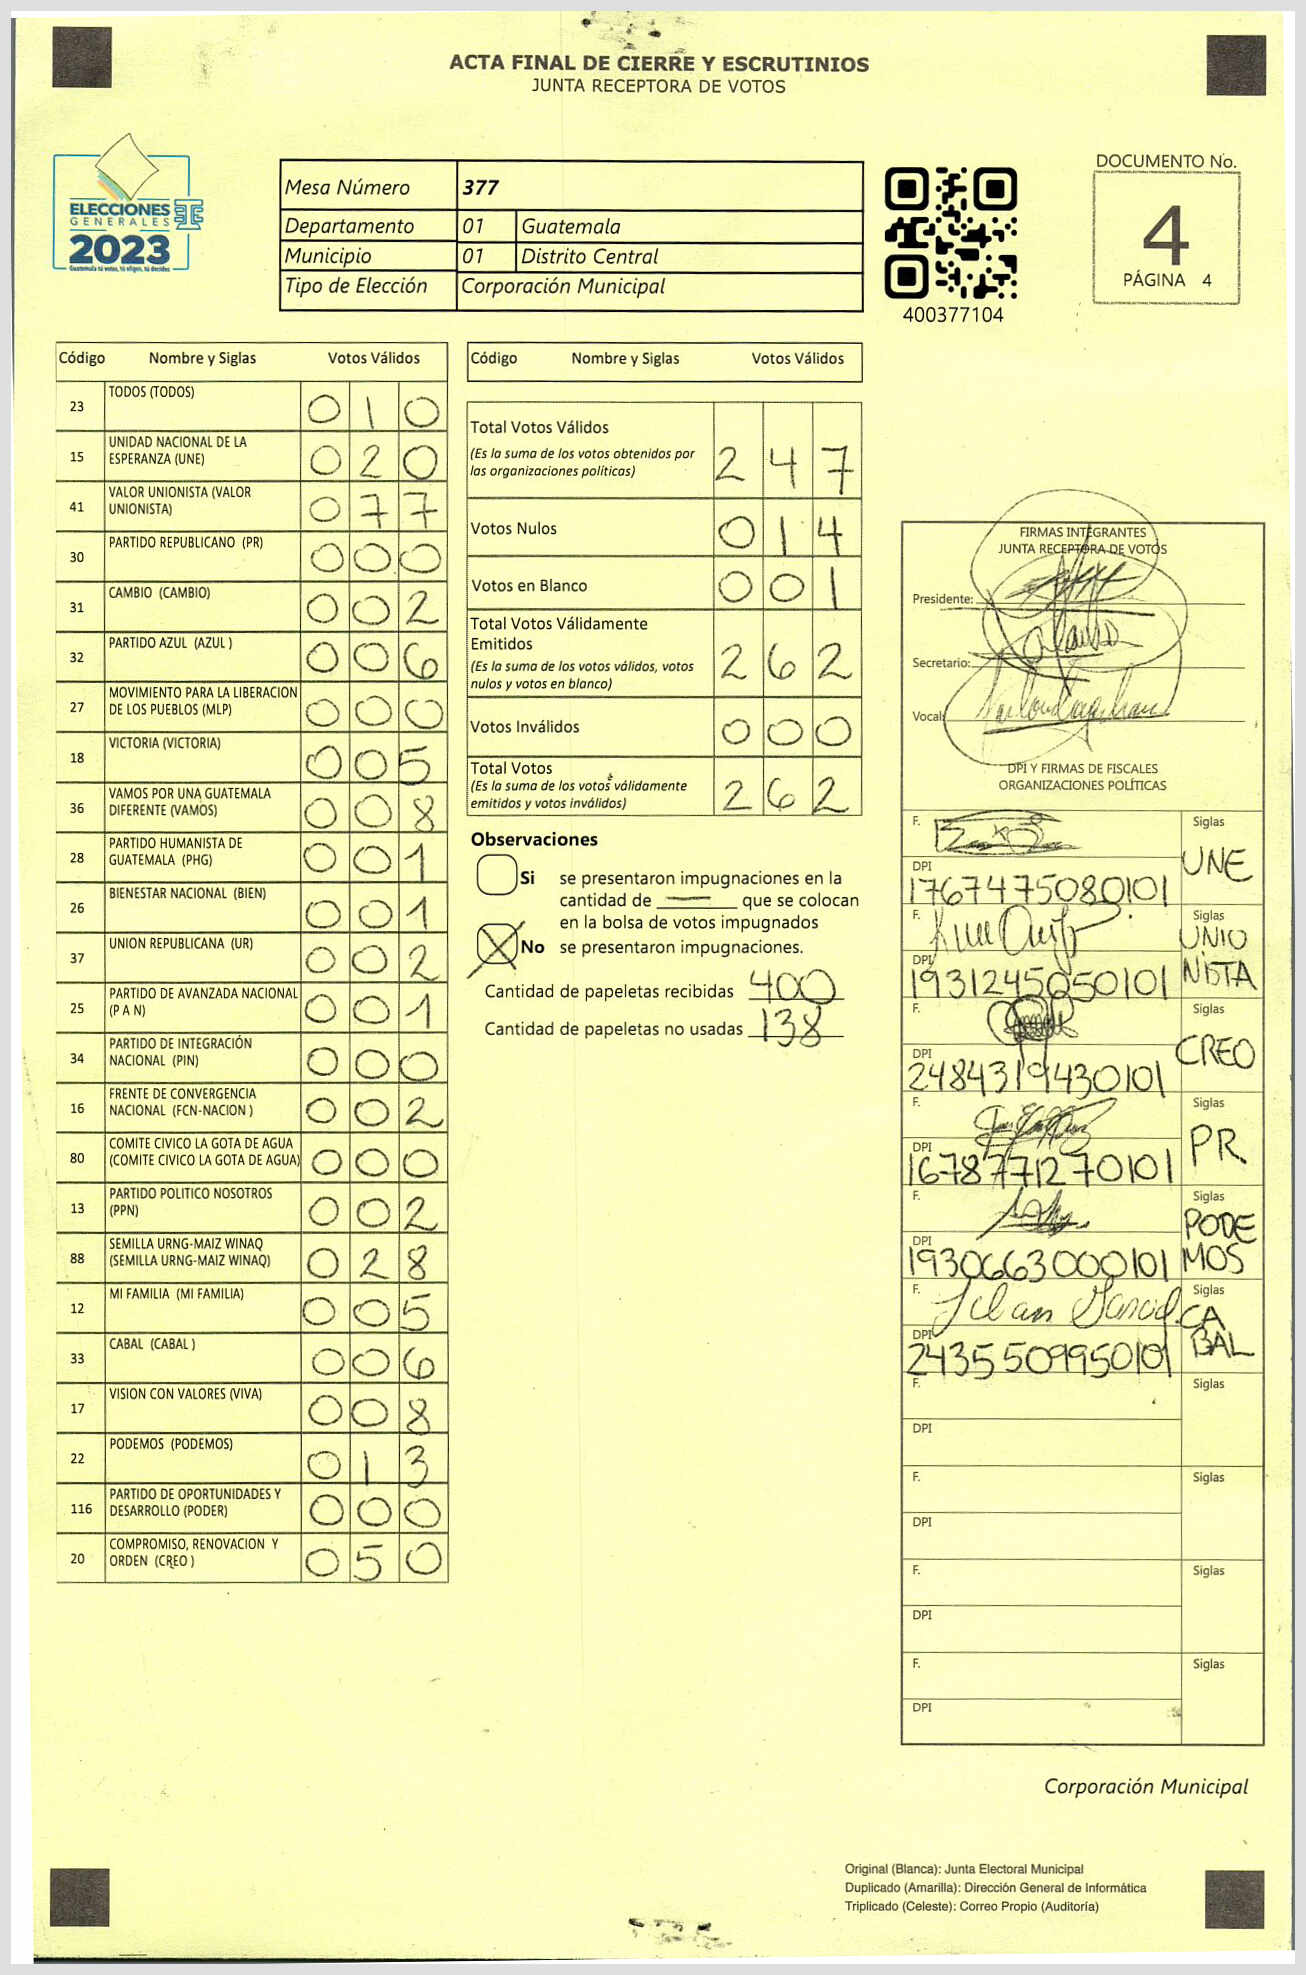 ACTA FINAL DE CIERRE Y ESCRUTINIOS
JUNTA RECEPTORA DE VOTOS
ELECCIONES
GENERALES
2023
Guatemala tú votas, tú eliges, tú decides
Mesa Número 377
Departamento 01 Guatemala
Municipio 01 Distrito Central
Tipo de Elección Corporación Municipal
400377104
DOCUMENTO No.
4
PÁGINA 4
Código Nombre y Siglas Votos Válidos
23 TODOS (TODOS) 0 1 0
15 UNIDAD NACIONAL DE LA
ESPERANZA (UNE) 0 2 0
41 VALOR UNIONISTA (VALOR
UNIONISTA) 0 7 7
30 PARTIDO REPUBLICANO (PR) 0 0 0
31 CAMBIO (CAMBIO) 0 0 2
32 PARTIDO AZUL (AZUL ) 0 0 6
27 MOVIMIENTO PARA LA LIBERACION
DE LOS PUEBLOS (MLP) 0 0 0
18 VICTORIA (VICTORIA) 0 0 5
36 VAMOS POR UNA GUATEMALA
DIFERENTE (VAMOS) 0 0 8
28 PARTIDO HUMANISTA DE
GUATEMALA (PHG) 0 0 1
26 BIENESTAR NACIONAL (BIEN) 0 0 1
37 UNION REPUBLICANA (UR) 0 0 2
25 PARTIDO DE AVANZADA NACIONAL
(P A N) 0 0 1
34 PARTIDO DE INTEGRACIÓN
NACIONAL (PIN) 0 0 0
16 FRENTE DE CONVERGENCIA
NACIONAL (FCN-NACION ) 0 0 2
80 COMITE CIVICO LA GOTA DE AGUA
(COMITE CIVICO LA GOTA DE AGUA) 0 0 0
13 PARTIDO POLITICO NOSOTROS
(PPN) 0 0 2
88 SEMILLA URNG-MAIZ WINAQ
(SEMILLA URNG-MAIZ WINAQ) 0 2 8
12 MI FAMILIA (MI FAMILIA) 0 0 5
33 CABAL (CABAL ) 0 0 6
17 VISION CON VALORES (VIVA) 0 0 8
22 PODEMOS (PODEMOS) 0 1 3
116 PARTIDO DE OPORTUNIDADES Y
DESARROLLO (PODER) 0 0 0
20 COMPROMISO, RENOVACION Y
ORDEN (CREO ) 0 5 0
Código Nombre y Siglas Votos Válidos
Total Votos Válidos
(Es la suma de los votos obtenidos por
las organizaciones políticas) 2 4 7
Votos Nulos 0 1 4
Votos en Blanco 0 0 1
Total Votos Válidamente
Emitidos
(Es la suma de los votos válidos, votos
nulos y votos en blanco) 2 6 2
Votos Inválidos 0 0 0
Total Votos
(Es la suma de los votos válidamente
emitidos y votos inválidos) 2 6 2
Observaciones
Si se presentaron impugnaciones en la
cantidad de — que se colocan
en la bolsa de votos impugnados
X No se presentaron impugnaciones.
Cantidad de papeletas recibidas 400
Cantidad de papeletas no usadas 138
FIRMAS INTEGRANTES
JUNTA RECEPTORA DE VOTOS
Presidente:
Secretario:
Vocal:
DPI Y FIRMAS DE FISCALES
ORGANIZACIONES POLÍTICAS
F. Siglas
UNE
DPI
1767475080101
F. Siglas
UNIO
NISTA
DPI
1931245050101
F. Siglas
CREO
DPI
2484319430101
F. Siglas
PR
DPI
1678771270101
F. Siglas
PODE
MOS
DPI
1930663000101
F. Siglas
CA
BAL
DPI
2435509950101
F. Siglas
DPI
F. Siglas
DPI
F. Siglas
DPI
F. Siglas
DPI
Corporación Municipal
Original (Blanca): Junta Electoral Municipal
Duplicado (Amarilla): Dirección General de Informática
Triplicado (Celeste): Correo Propio (Auditoría)